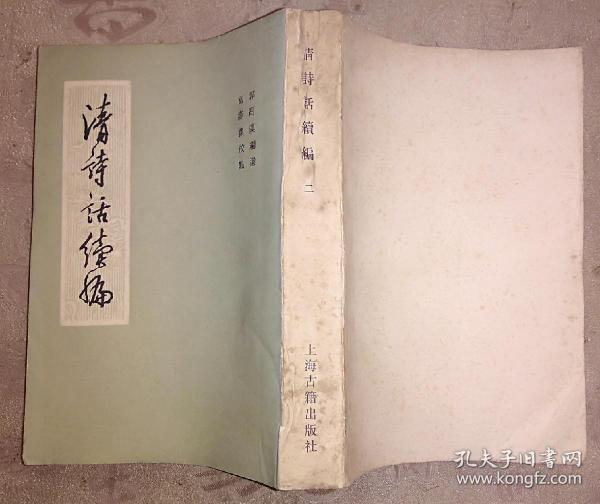 清詩話續編
郭紹虞編選
富壽蓀校點
清詩話續編 二
上海古籍出版社
孔夫子旧书网
www.kongfz.com